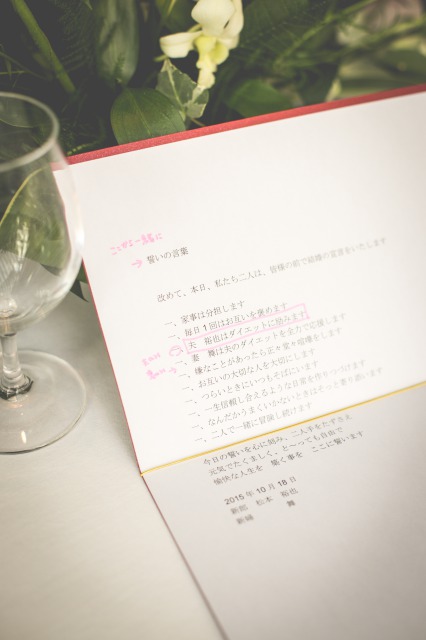 ここから一緒に
→ 誓いの言葉
改めて、本日、私たち二人は、皆様の前で結婚の宣言をいたします
一、家事は分担します
一、毎日1回はお互いを褒めます
夫 裕也はダイエットに励みます
妻 舞は夫のダイエットを全力で応援します
一、嫌なことがあったら正々堂々喧嘩をします
一、お互いの大切な人を大切にします
一、つらいときにいつもそばにいます
一、一生信頼し合えるような日常を作りつづけます
一、なんだかうまくいかないときはそっと寄り添います
一、二人で一緒に冒険し続けます
今日の誓いを心に刻み、二人手をたずさえ
元気でたくましく、とーっても自由で
愉快な人生を 築く事を ここに誓います
2015年10月18日
新郎 松本 裕也
新婦 舞